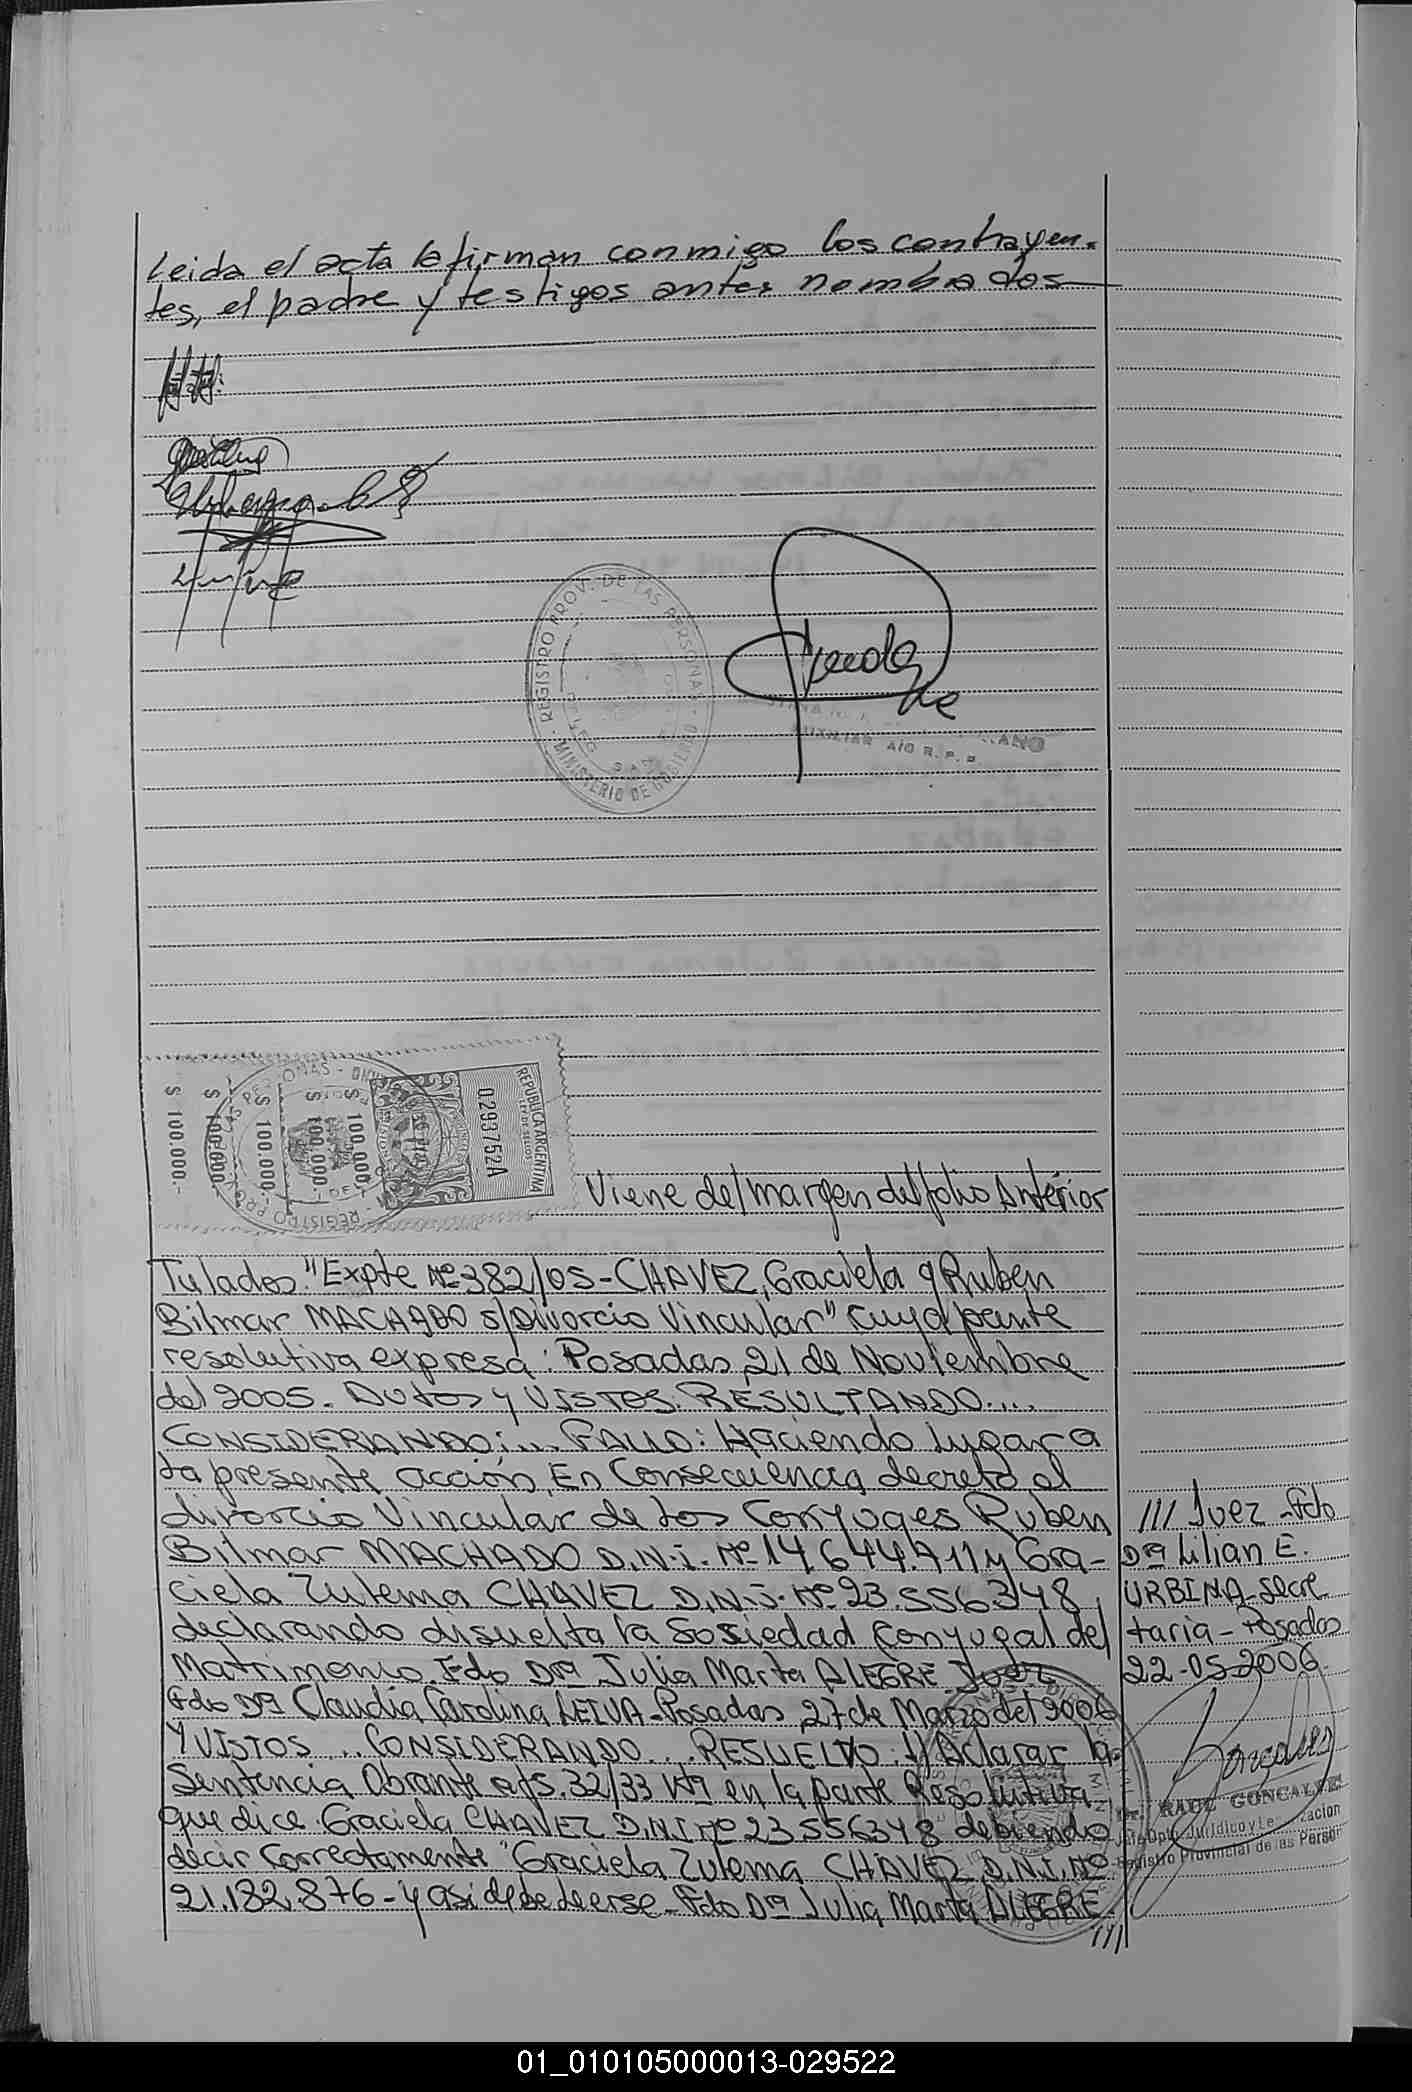 Leida el acta la firman conmigo los contrayen-
tes, el padre y testigos antes nombrados
REGISTRO PROV. DE LAS PERSONAS
MINISTERIO DE GOBIERNO
AUXILIAR A/C R.P.P.
REPUBLICA ARGENTINA
LEY DE SELLOS
0293752A
$ 100.000.-
$ 100.000.-
$ 100.000.-
$ 100.000.-
$ 100.000.-
Viene del margen del folio Anterior
Tulados "Expte Nº 382/05 - CHAVEZ, Graciela y Ruben
Bilmar MACHADO s/Divorcio Vincular" cuya parte
resolutiva expresa: Posadas, 21 de Noviembre
del 2005. Autos y VISTOS: RESULTANDO....
CONSIDERANDO:... FALLO: Haciendo lugar a
la presente acción, En Consecuencia decreto el
divorcio Vincular de Los Conyuges Ruben
Bilmar MACHADO D.N.I. Nº 14.644.711 y Gra-
ciela Zulema CHAVEZ D.N.I. Nº 23.556348,
declarando disuelta la Sosiedad Conyugal del
Matrimonio. Fdo Dra Julia Marta ALEGRE. Juez
Fdo Dra Claudia Carolina LEIVA - Posadas, 27 de Marzo del 2006
Y VISTOS... CONSIDERANDO... RESUELVO: 1) Aclarar la
Sentencia Obrante a fs. 32/33 vta en la parte Resolutiva
que dice Graciela CHAVEZ D.N.I Nº 23556348 debiendo
decir Correctamente "Graciela Zulema CHAVEZ D.N.I. Nº
21.182.876 - y asi debe leerse - Fdo Dra Julia Marta ALEGRE.
///
/// Juez - Fdo
Dra Lilian E.
URBINA - Secre
taria - Posadas
22-05-2006
Dr. RAUL GONCALVES
Jefe Dpto. Jurídico y Le
Registro Provincial de las Person
01_010105000013-029522